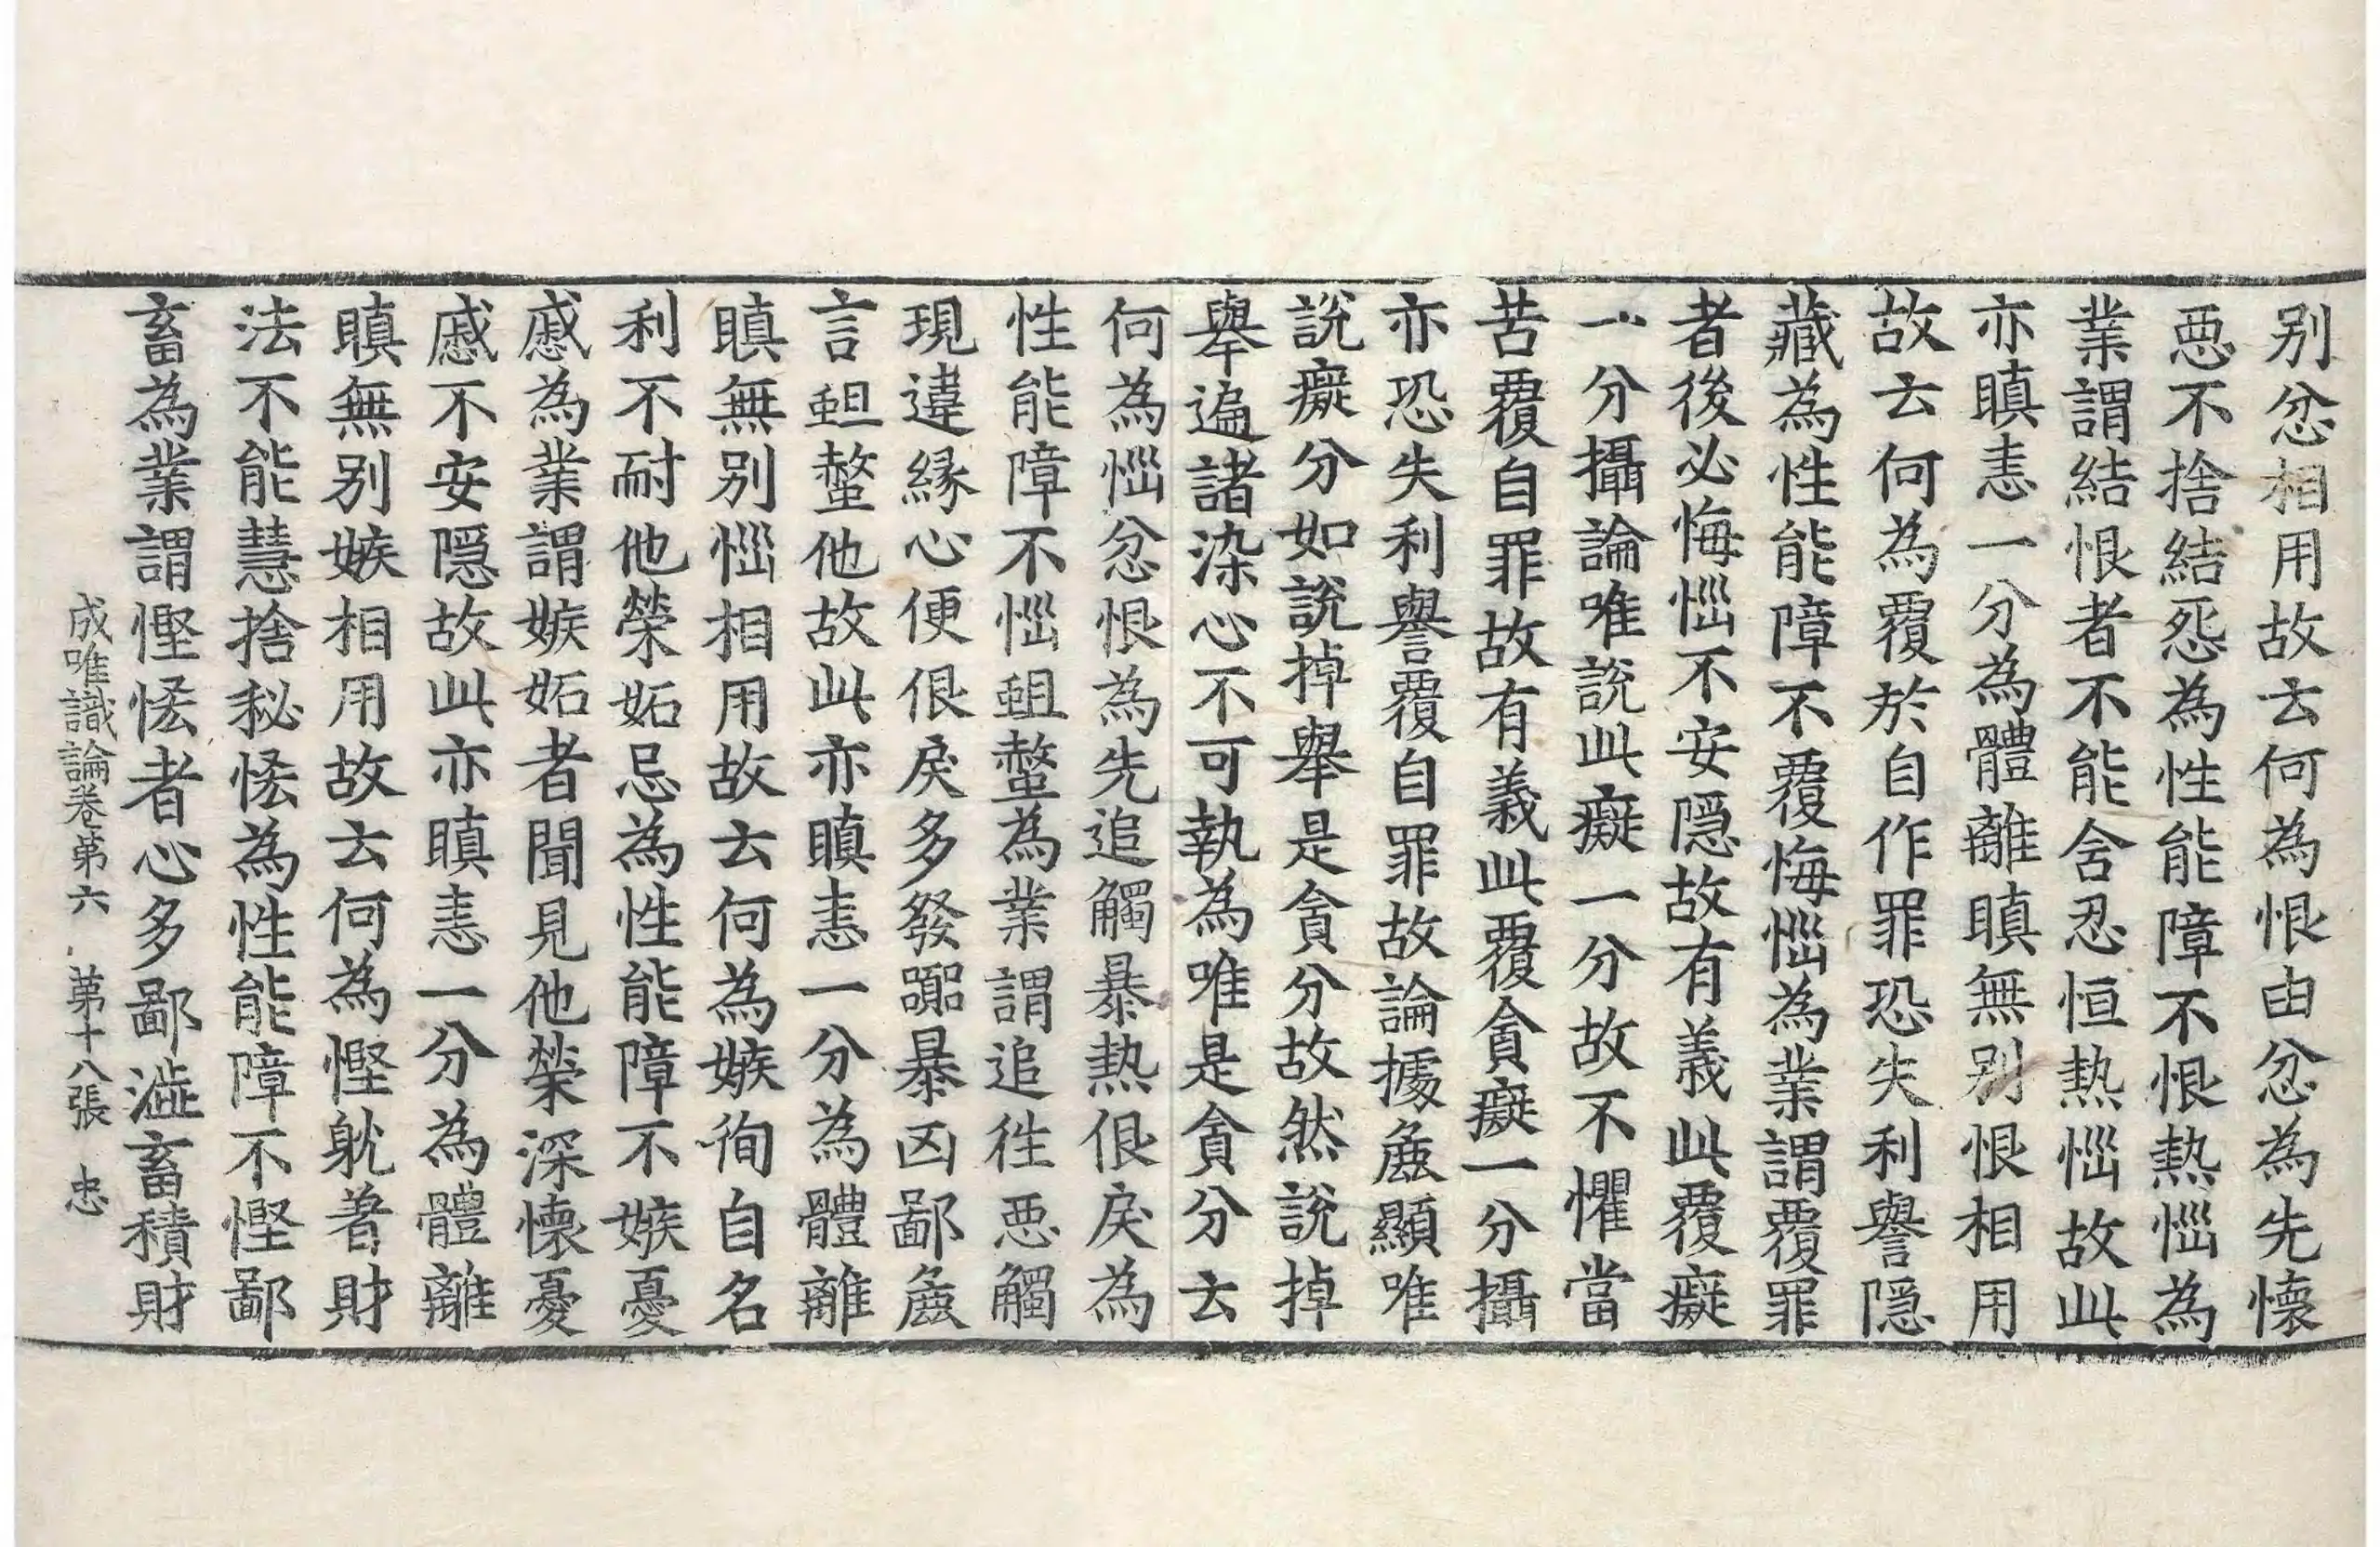 别忿相用故云何為恨由忿為先懷
惡不捨結怨為性能障不恨熱惱為
業謂結恨者不能含忍恒熱惱故此
亦瞋恚一分為體離瞋無别恨相用
故云何為覆於自作罪恐失利譽隱
藏為性能障不覆悔惱為業謂覆罪
者後必悔惱不安隱故有義此覆癡
一分攝論唯說此癡一分故不懼當
苦覆自罪故有義此覆貪癡一分攝
亦恐失利譽覆自罪故論據麁顯唯
說癡分如說掉舉是貪分故然說掉
舉遍諸染心不可執為唯是貪分云
何為惱忿恨為先追觸暴熱佷戾為
性能障不惱蛆螫為業謂追往惡觸
現違緣心便佷戾多發嚻暴凶鄙麁
言蛆螫他故此亦瞋恚一分為體離
瞋無别惱相用故云何為嫉徇自名
利不耐他榮妬忌為性能障不嫉憂
慼為業謂嫉妬者聞見他榮深懷憂
慼不安隱故此亦瞋恚一分為體離
瞋無别嫉相用故云何為慳躭著財
法不能慧捨秘悋為性能障不慳鄙
畜為業謂慳悋者心多鄙澁畜積財
成唯識論卷第六 第十八張 忠